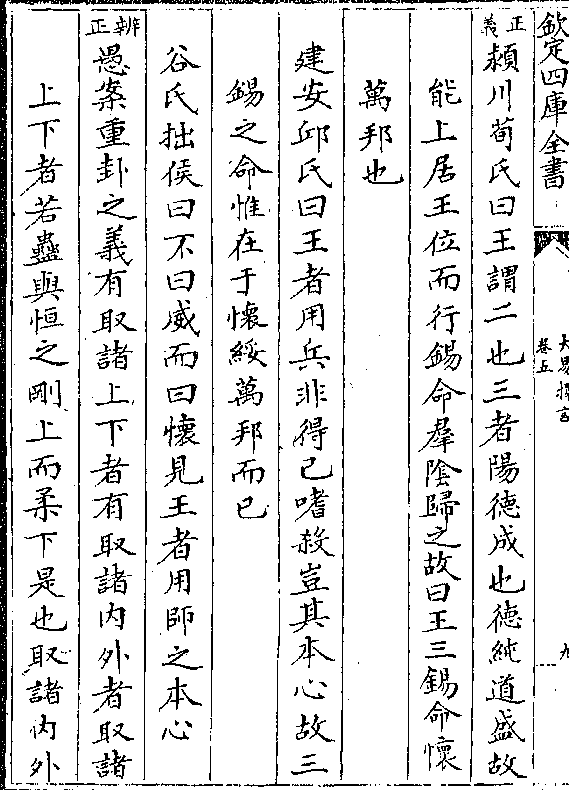 欽定四庫全書
大易擇言
卷五
九
正義
潁川荀氏曰王謂二也三者陽德成也德純道盛故
能上居王位而行錫命羣陰歸之故曰王三錫命懷
萬邦也
建安邱氏曰王者用兵非得已嗜殺豈其本心故三
錫之命惟在于懷綏萬邦而已
谷氏拙侯曰不曰威而曰懷見王者用師之本心
辨正
愚案重卦之義有取諸上下者有取諸内外者取諸
上下者若蠱與恒之剛上而柔下是也取諸内外